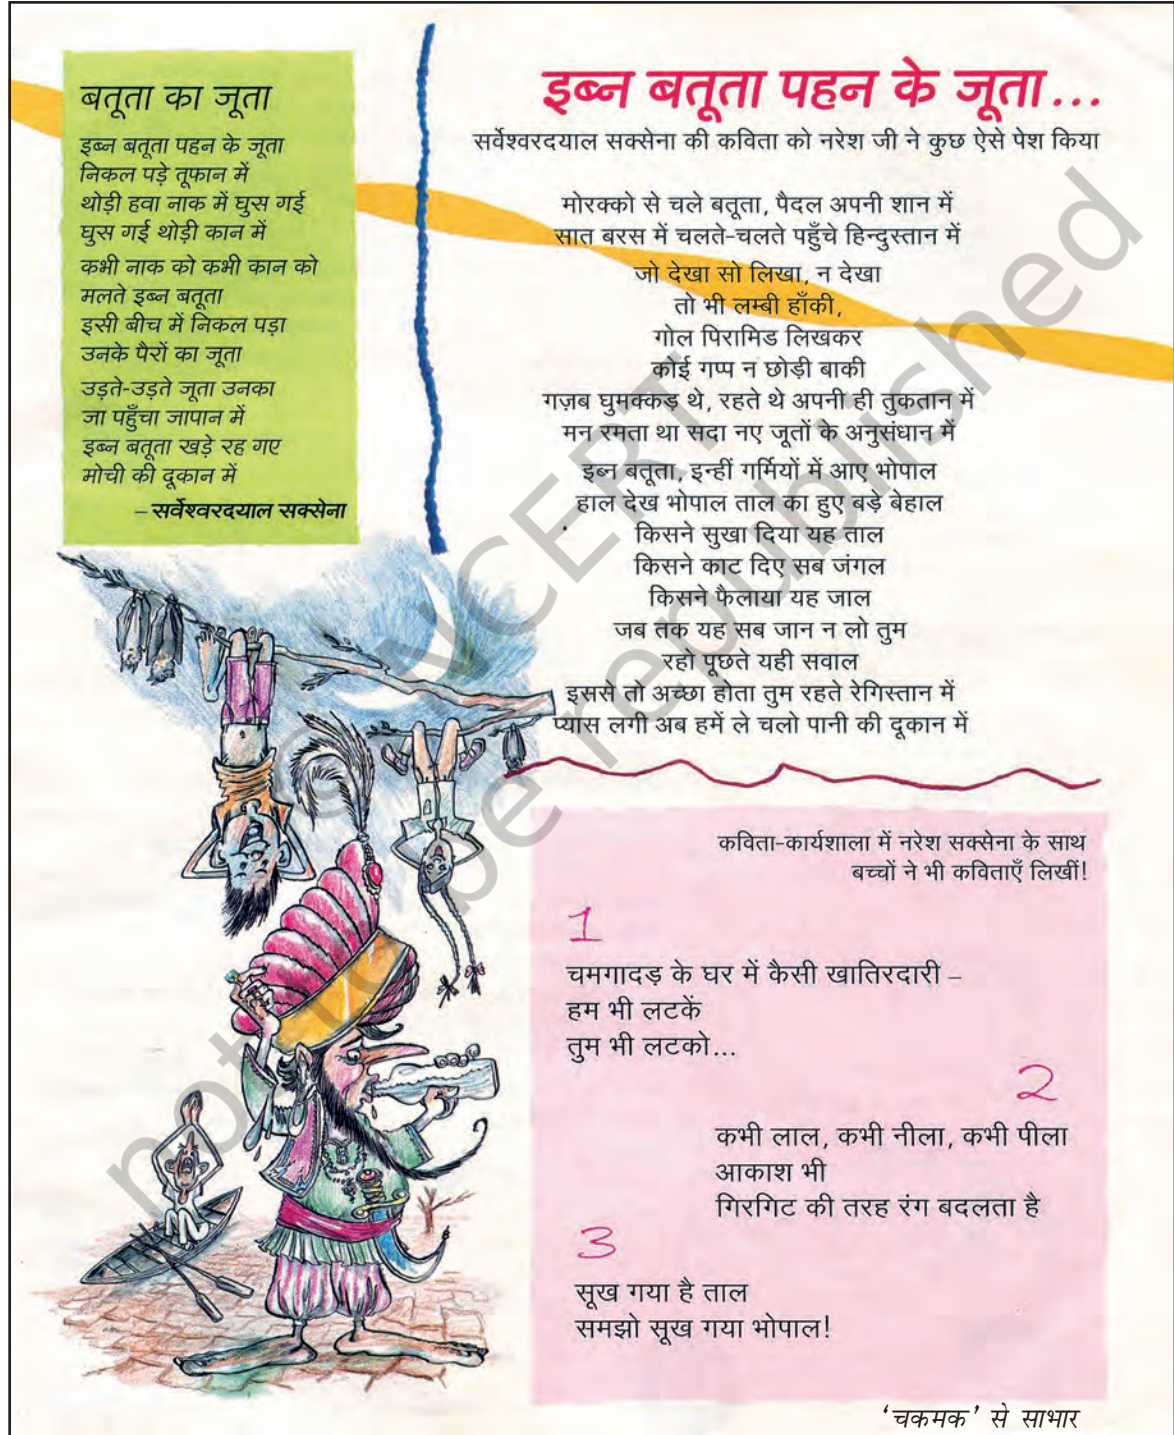 बतूता का जूता
इब्न बतूता पहन के जूता
निकल पड़े तूफान में
थोड़ी हवा नाक में घुस गई
घुस गई थोड़ी कान में
कभी नाक को कभी कान को
मलते इब्न बतूता
इसी बीच में निकल पड़ा
उनके पैरों का जूता
उड़ते-उड़ते जूता उनका
जा पहुँचा जापान में
इब्न बतूता खड़े रह गए
मोची की दूकान में
– सर्वेश्वरदयाल सक्सेना
इब्न बतूता पहन के जूता...
सर्वेश्वरदयाल सक्सेना की कविता को नरेश जी ने कुछ ऐसे पेश किया
मोरक्को से चले बतूता, पैदल अपनी शान में
सात बरस में चलते-चलते पहुँचे हिन्दुस्तान में
जो देखा सो लिखा, न देखा
तो भी लम्बी हाँकी,
गोल पिरामिड लिखकर
कोई गप्प न छोड़ी बाकी
गज़ब घुमक्कड़ थे, रहते थे अपनी ही तुकतान में
मन रमता था सदा नए जूतों के अनुसंधान में
इब्न बतूता, इन्हीं गर्मियों में आए भोपाल
हाल देख भोपाल ताल का हुए बड़े बेहाल
किसने सुखा दिया यह ताल
किसने काट दिए सब जंगल
किसने फैलाया यह जाल
जब तक यह सब जान न लो तुम
रहो पूछते यही सवाल
इससे तो अच्छा होता तुम रहते रेगिस्तान में
प्यास लगी अब हमें ले चलो पानी की दूकान में
कविता-कार्यशाला में नरेश सक्सेना के साथ
बच्चों ने भी कविताएँ लिखीं!
1
चमगादड़ के घर में कैसी खातिरदारी –
हम भी लटकें
तुम भी लटको...
2
कभी लाल, कभी नीला, कभी पीला
आकाश भी
गिरगिट की तरह रंग बदलता है
3
सूख गया है ताल
समझो सूख गया भोपाल!
'चकमक' से साभार
© NCERT
not to be republished